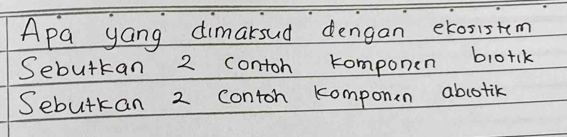 Apa yang dimaksud dengan ekosistem
Sebutkan 2 contoh komponen biotik
Sebutkan 2 contoh komponen abiotik